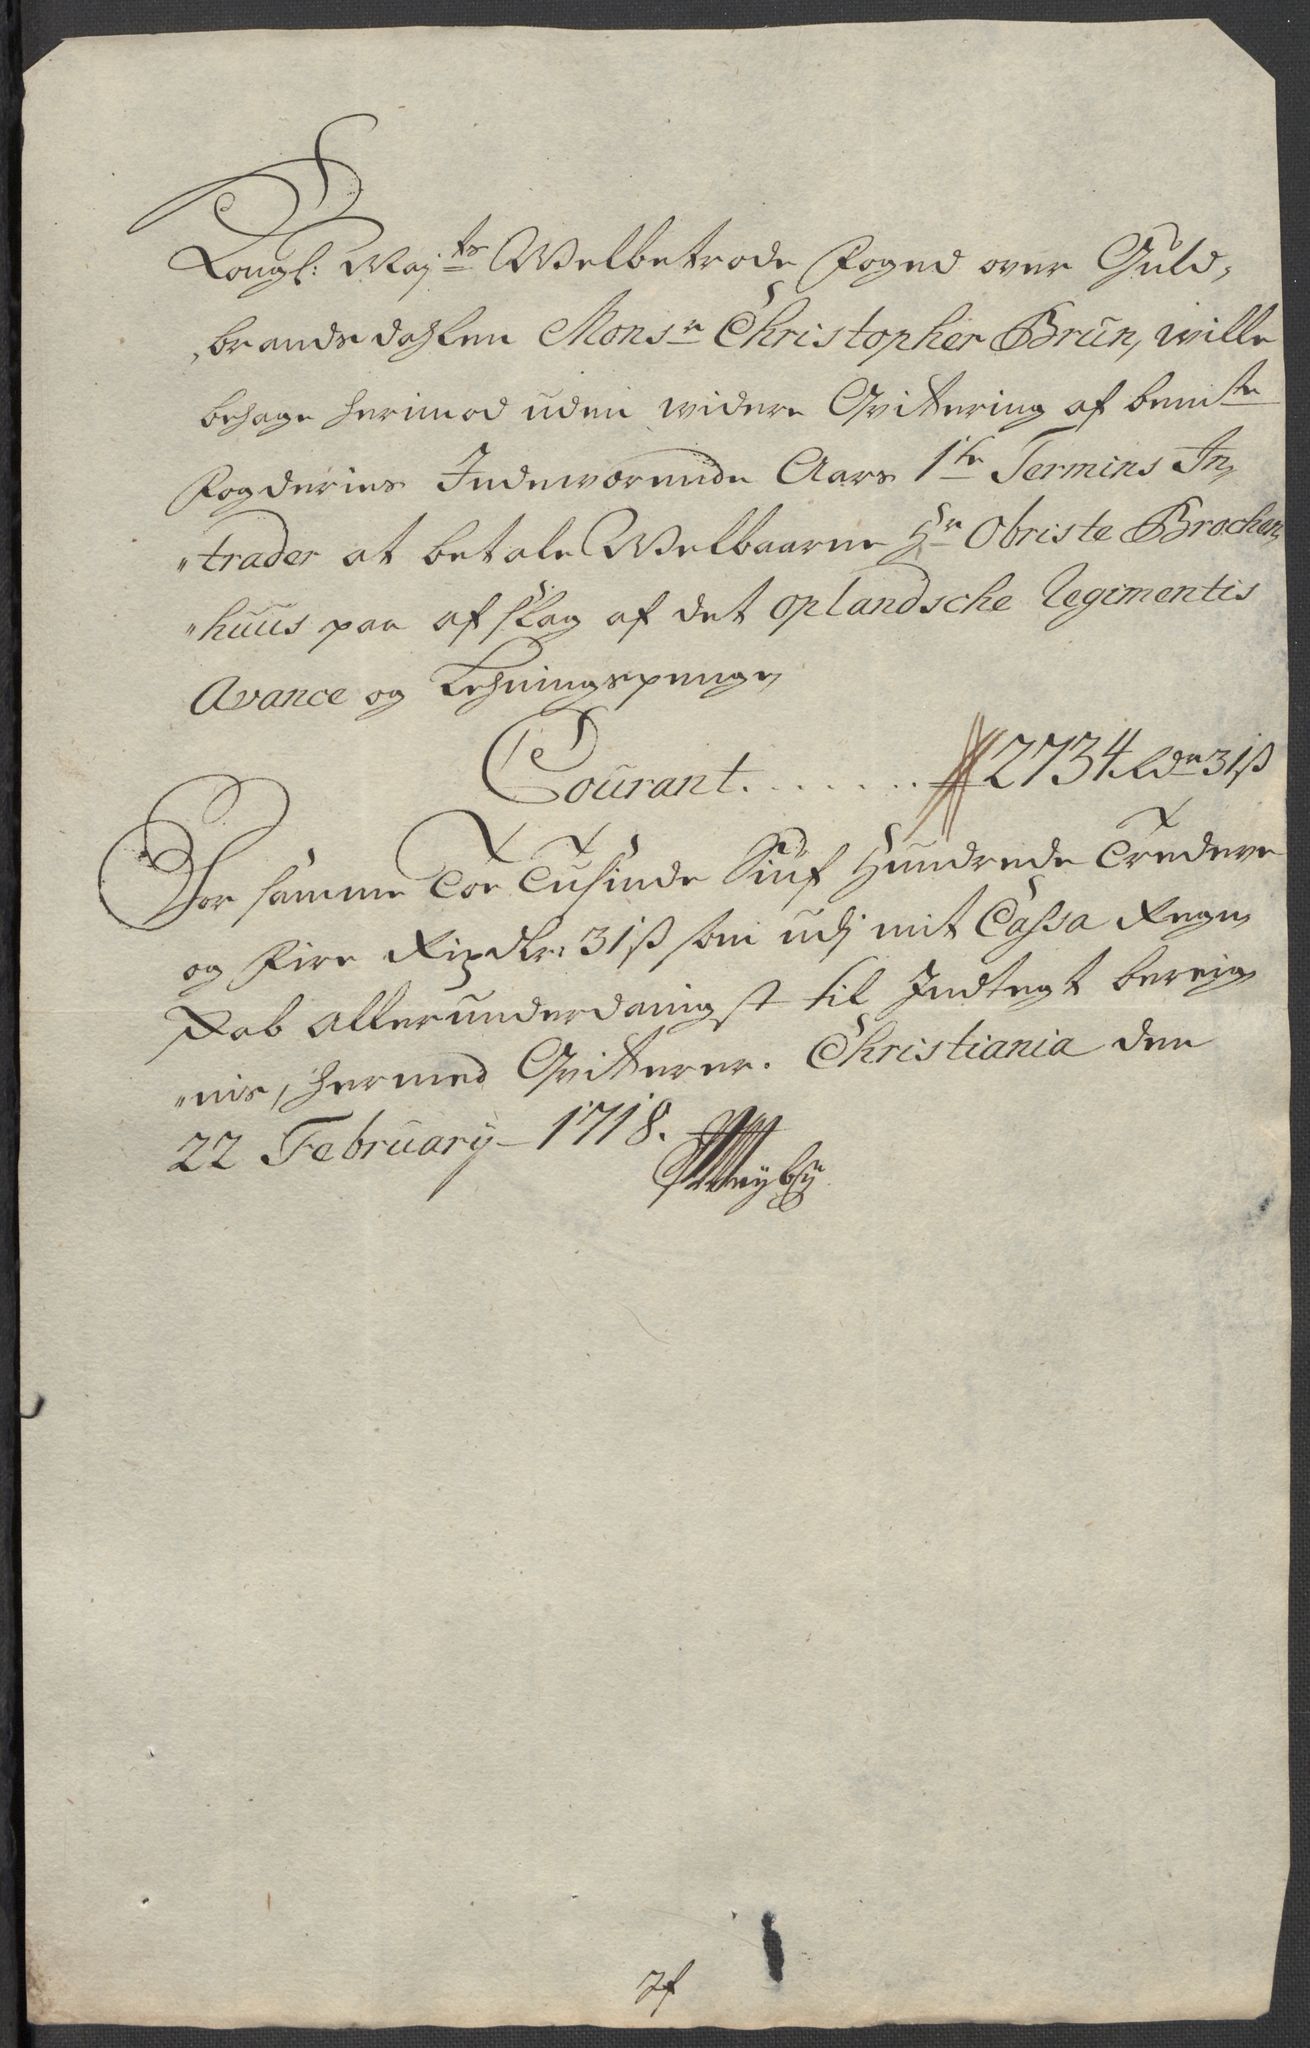 Kongl: Maj:ts Welbetrode Foged over Guld,
,brandsdahlen Monsr Christopher Brün, wille
behage herimod uden widere Qvittering af bemte
Fogderies Indewærende Aars 1te Termins In,
"trader at betale Welbaarne Hr Obriste Brochen,
"huus paa afslag af det oplandsche Regimentis
Avance og Lehningspenge,
Courant . . . . . . . 2734 Rdr 31 ß
For samme Toe Tusinde Siuf Hundrede Tredeve
og Fire Rixdlr: 31 ß som udj mit Cassa Regn,
skab allerunderdanigst til Indtegt bereig,
"nis, hermed Qvitterer. Christiania den
22 February 1718.